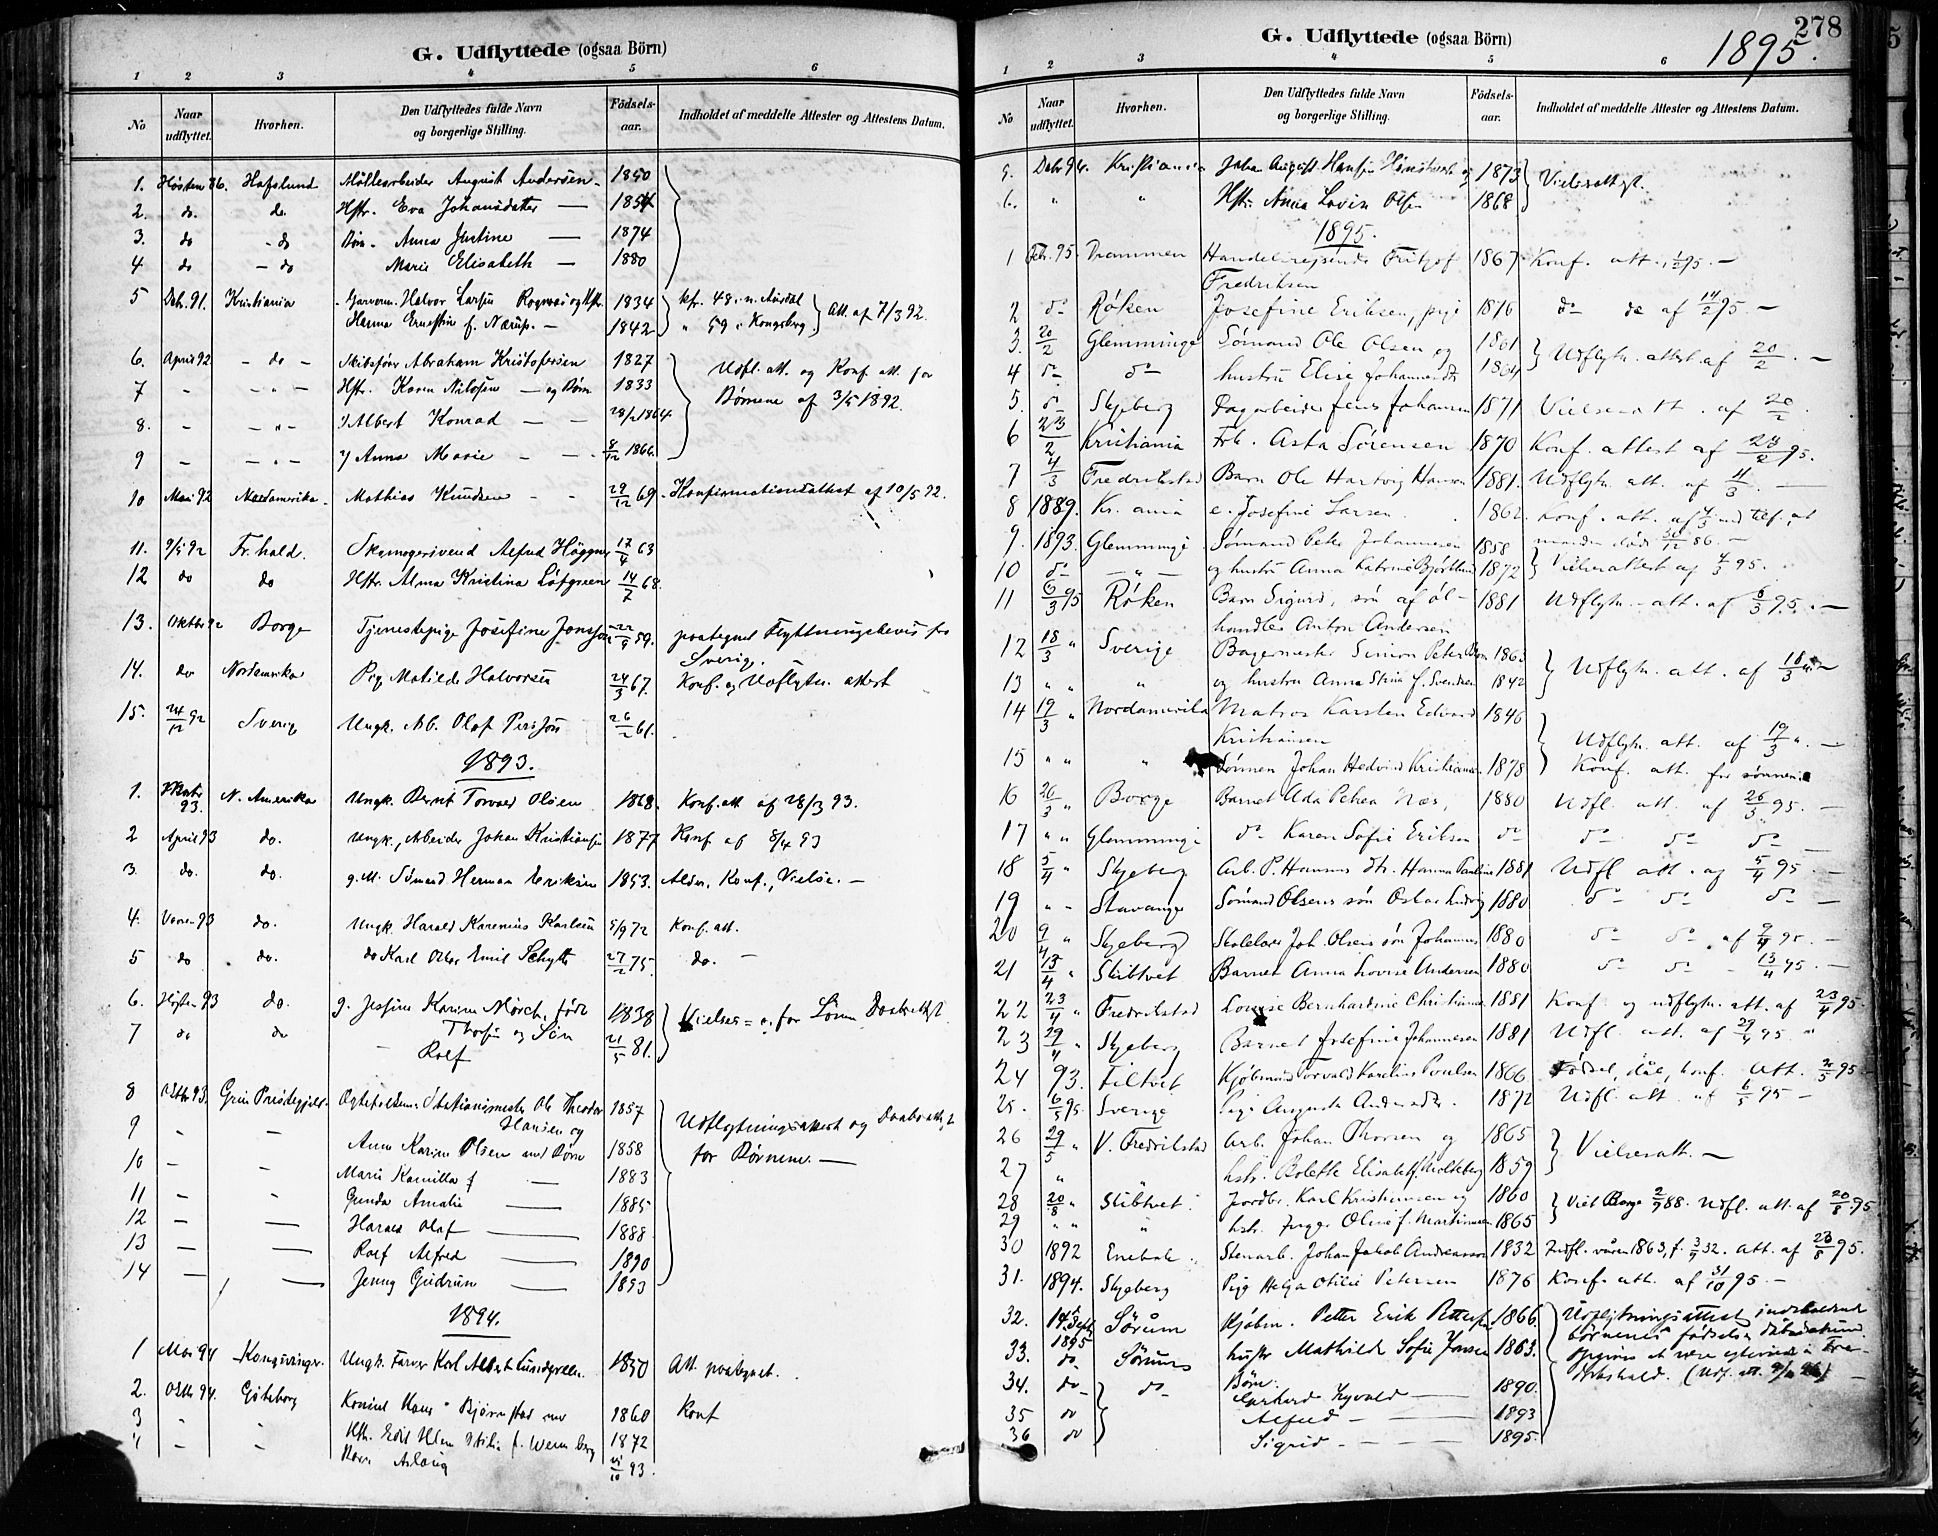 G. Udflyttede (ogsaa Börn)
1 2 3 4 5 6
No Naar udflyttet. Hvorhen. Den Udflyttedes fulde Navn og borgerlige Stilling. Födsels-aar. Indholdet af meddelte Attester og Attestens Datum.
1. Høsten 86. Hafslund Møllearbeider August Andersen 1850
2. do. do. Hstr. Eva Johansdatter — 1854
3. do - do Børn. Anna Justine — 1874
4 do — do Marie Elisabeth — 1880
5 Debr. 91. Kristiania Garverm. Halvor Larsen og Hstr. 1834 kfr. 48 i n. Aurdal Att. af 7/3 92.
Hanna f. — 1842 " 59 i Kongsberg
6. April 92 - do - Skibsfører Abraham Kristofersen 1827 Udfl. att. og Konf. att. for
7 - - " - Hstr. Karen Nilssen — og Børn 1833 Børnene af 3/5 1892.
8. - - " - Albert Konrad — — 28/2 1864
9 — - " - Anna Marie - - 8/12 1866.
10 Mai 92 Nordamerika Mathias Knudsen - - 29/12 69. Konfirmationsattest af 10/5 92.
11. 9/5 92 Fr.hald. Alfred 17/4 63
12 do do Hstr. Alma Kristina Löfgreen 14/7 68.
13. Oktbr 92 Borge Tjenestepige Josefine 22/9 59. paategnet Flyttningsbevis fra
Sverige.
14. do Nordamerika Pige Matilde Halvorsen 24/3 67. Konf. og Udflytn. attest
15. 24/12 92 Sverig Ungk. Olof 26/2 61.
1893.
1. 93. N. Amerika Ungk. Bernt Torvald Olsen 1868. Konf. att. af 28/3 93.
2 April 93 do. Ungk., Arbeider Johan Kristiansen 1877 Konf af 8/4 93
3. do. do. g. M. Sømand Herman Eriksen 1853. Alder, Konf., Vielse. —
4. Vaaren 93 do. Ungk. Harald Karenius Karlsen 5/9 72 Konf. att.
5 do do. do Karl Emil Schytte 27/2 75. do. —
6. Høsten 93 do. g. Karen Mørch, født 1838 Vielses= o. for Sønn Daabsattest
7 do do og Søn
Rolf 21/5 81.
8 Oktb 93. Grue Præstegjeld. Ægtefolkene Stationsmester Ole Theodor 1857 Udflytningsattest og Daabsattest
9 - — Hansen og
Anna Karine Olsen med Børn 1858 for Børnene. —
10 — — Marie Kamilla — 1883
11 - - Gunda Amalie — 1885
12 — — Harald Olaf — 1888
13 — — Rolf Alfred — 1890
14 — — Jenny Gudrun — 1893
1894.
1 94 Kongsvinger. Ungk. Farver Karl Albert 1850 Att. paategnet.
2. Oktb 94. Göteborg Hans Bjørnstad 1860 Konf
3 - - Hstr. f. 1872
4 - - Barn Aslaug 93.

G. Udflyttede (ogsaa Börn) 278
1895.
1 2 3 4 5 6
No Naar udflyttet. Hvorhen. Den Udflyttedes fulde Navn og borgerlige Stilling. Födsels-aar. Indholdet af meddelte Attester og Attestens Datum.
5. Debr 94. Kristiania Johan August Hansen og 1873 Vielsesattest.
6. " " Hstr. Anna Lovise Olsen 1868
1895.
1 Febr. 95 Drammen Handelsreisende Fritjof 1867 Konf. att. 1/2 95. —
Fredriksen
2 do Røken Josefine Eriksen, pige 1876 do de af 14/2 95 —
3. 20/2 Glemminge Sømand Ole Olsen og 1861 Udflytn. attest af 20/2. —
4 do do hustru Elise 1864
5. do Skjeberg Dagarbeider Jens Johansen 1871 Vielsesatt. af 20/2.
6 23/2 Kristiania Frk. Asta Sörensen 1870 Konf. attest af 23/2 95.
7 4/3 Fredrikstad Barn Ole Hartvig Hansen 1881. Udflytn. att. af 4/3. —
8 1889. Kr.ania e. Josefine Larsen 1862. Konf. att. af 4/3 med tilf. at
9. 1893. Glemminge Sømand Peter Johannesen 1858 manden døde 30/12 86. —
10 do - " - og hustru Anna Katrine 1872 Vielsesattest af 4/3 95.
11 6/3 95 Røken Barn Sigurd, søn af øl- 1881 Udflytn. - att. af 6/3 95. —
handler Anton Andersen
12 18/3 " Sverige Bagermester Simon Peter 1863 Udflytn. att. af 18/3 —
13 " " " og hustru Anna f. Svendsen 1842
14 19/3 " Nordamerika Matros Karsten Edvard 1846 Udflytn. att. af 19/3 ". —
Kristiansen
15 " " " Sønnen Johan Hedvin Kristiansen 1878 Konf. att. for sønnen.
16 26/3 " Borge Barnet Ada Petrea Næs, 1880 Udfl. att. af 26/3 95. —
17 " " Glemminge do Karen Sofie Eriksen do do do do —
18 5/4 " Skjeberg Arb. P. Hansens dtr. Hanna Pauline 1881 Udfl att. af 5/4 95. —
19 " - Stavanger Sømand Olsens søn Oskar Ludvig 1880 do do do —
20 9/4 " Skjeberg Joh. Olsens søn Johannes 1880 do do af 9/4 95. —
21 13/4 " Skibtvet Barnet Anna Lovise Andersen 1880 do do - 13/4 95. —
22 23/4 " Fredrikstad Lovise Bernhardine Christiansen 1881 Konf. og udflytn. att. af 23/4 95.
23 29/4 " Skjeberg Barnet Josefine Johannesen 1881 Udfl. att. af 29/4 95 "
24 93. Filtvet Kjøbmand Torvald Poulsen 1866 Fødsel, dåb, konf. att. 95 -
25. 6/5 95. Sverige Pige Augusta 1872 Udfl. att. af 6/5 95 —
26 29/5 " V. Fredrikstad Arb. Johan Thorsen og 1865 Vielsesatt. —
27 " hstr. Bolette Elisabeth 1859
28 20/8 " Skibtvet Jordbr. Karl Kristiansen og 1860 Viet Borge 2/9 88. Udfl. att. af 20/8 95.
29 " " " hstr. Olive f. Martinsen 1865
30 1892 Enebak Stenarb. Johan Jakob Andreassen 1832 Indfl. våren 1863, f. 3/9 32. att. af 23/8 95.
31. 1894. Skjeberg Pige Helga Otilie Petersen 1876 Konf. att. af 31/10 95. —
32. 14. Sept 1895 Sørum Kjøbm. Petter Erik Pettersen 1866. Udflytningsattest indeholdende
33. do. Sørum hustr Mathilde Sofie Jansen 1863. børnenes fødsels- og dåbsdatum.
34. do do Børn. Gerhard 1890. Opgives at være i Fre-
35 do Alfred — — 1893 drikshald. (Udf. att.
36 do Sigrid — — 1895.